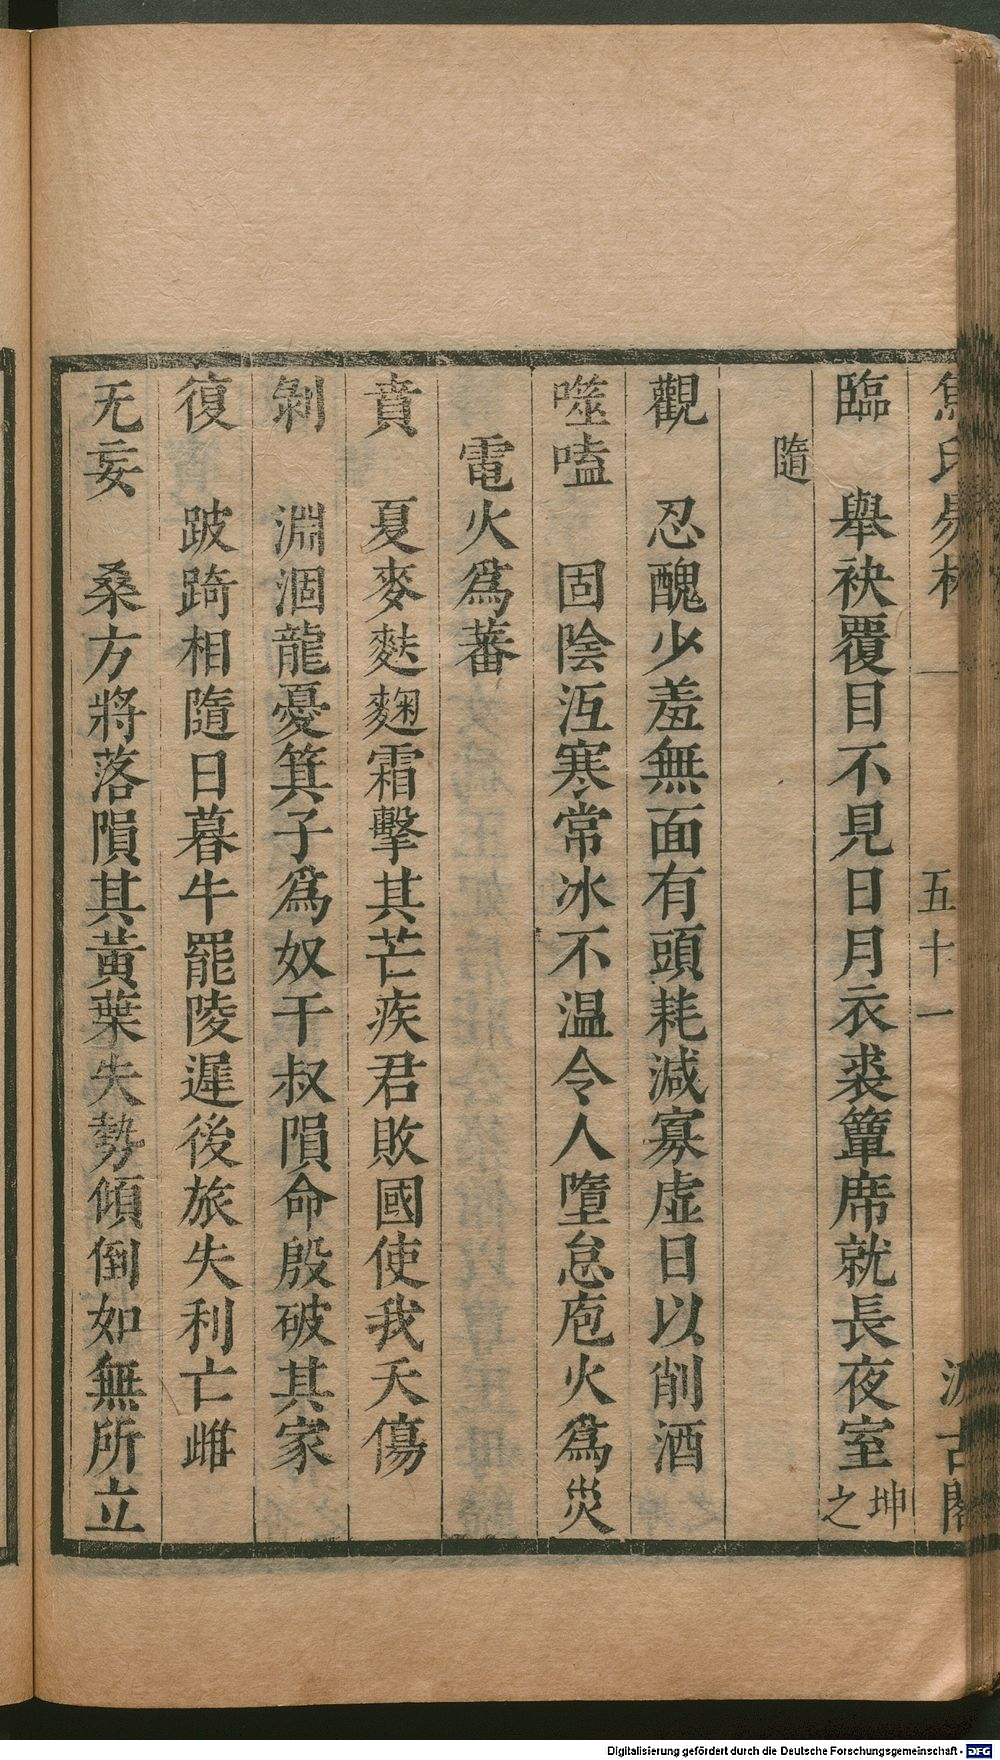 焦氏易林 五十一 汲古閣
臨 舉袂覆目不見日月衣裘簟席就長夜室坤之
隨
觀 忍醜少羞無面有頭耗減寡虛日以削酒
噬嗑 固陰冱寒常冰不温令人墮怠庖火爲災
電火爲蕃
賁 夏麥䴬麴霜擊其芒疾君敗國使我夭傷
剝 淵涸龍憂箕子爲奴干叔隕命殷破其家
復 跛踦相隨日暮牛罷陵遲後旅失利亡雌
无妄 桑方將落隕其黃葉失勢傾倒如無所立
Digitalisierung gefördert durch die Deutsche Forschungsgemeinschaft - DFG